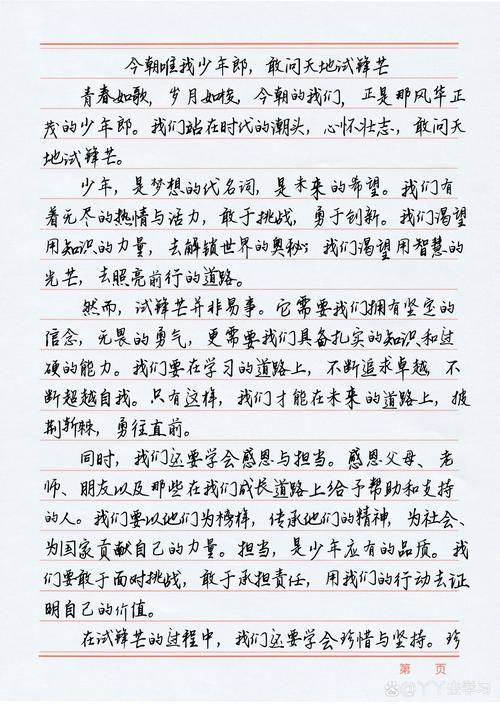 今朝唯我少年郎，敢问天地试锋芒
青春如歌，岁月如梭，今朝的我们，正是那风华正
茂的少年郎。我们站在时代的潮头，心怀壮志，敢问天
地试锋芒。
少年，是梦想的代名词，是未来的希望。我们有
着无尽的热情与活力，敢于挑战，勇于创新。我们渴望
用知识的力量，去解锁世界的奥秘；我们渴望用智慧的
光芒，去照亮前行的道路。
然而，试锋芒并非易事。它需要我们拥有坚定的
信念，无畏的勇气，更需要我们具备扎实的知识和过
硬的能力。我们要在学习的道路上，不断追求卓越 不
断超越自我。只有这样，我们才能在未来的道路上，披
荆斩棘，勇往直前。
同时，我们还要学会感恩与担当。感恩父母、老
师、朋友以及那些在我们成长道路上给予帮助和支持
的人。我们要以他们为榜样，传承他们的精神，为社会、
为国家贡献自己的力量。担当，是少年应有的品质。我
们要敢于面对挑战，敢于承担责任，用我们的行动去证
明自己的价值。
在试锋芒的过程中，我们还要学会珍惜与坚持。珍
第 页
@丫丫在学习